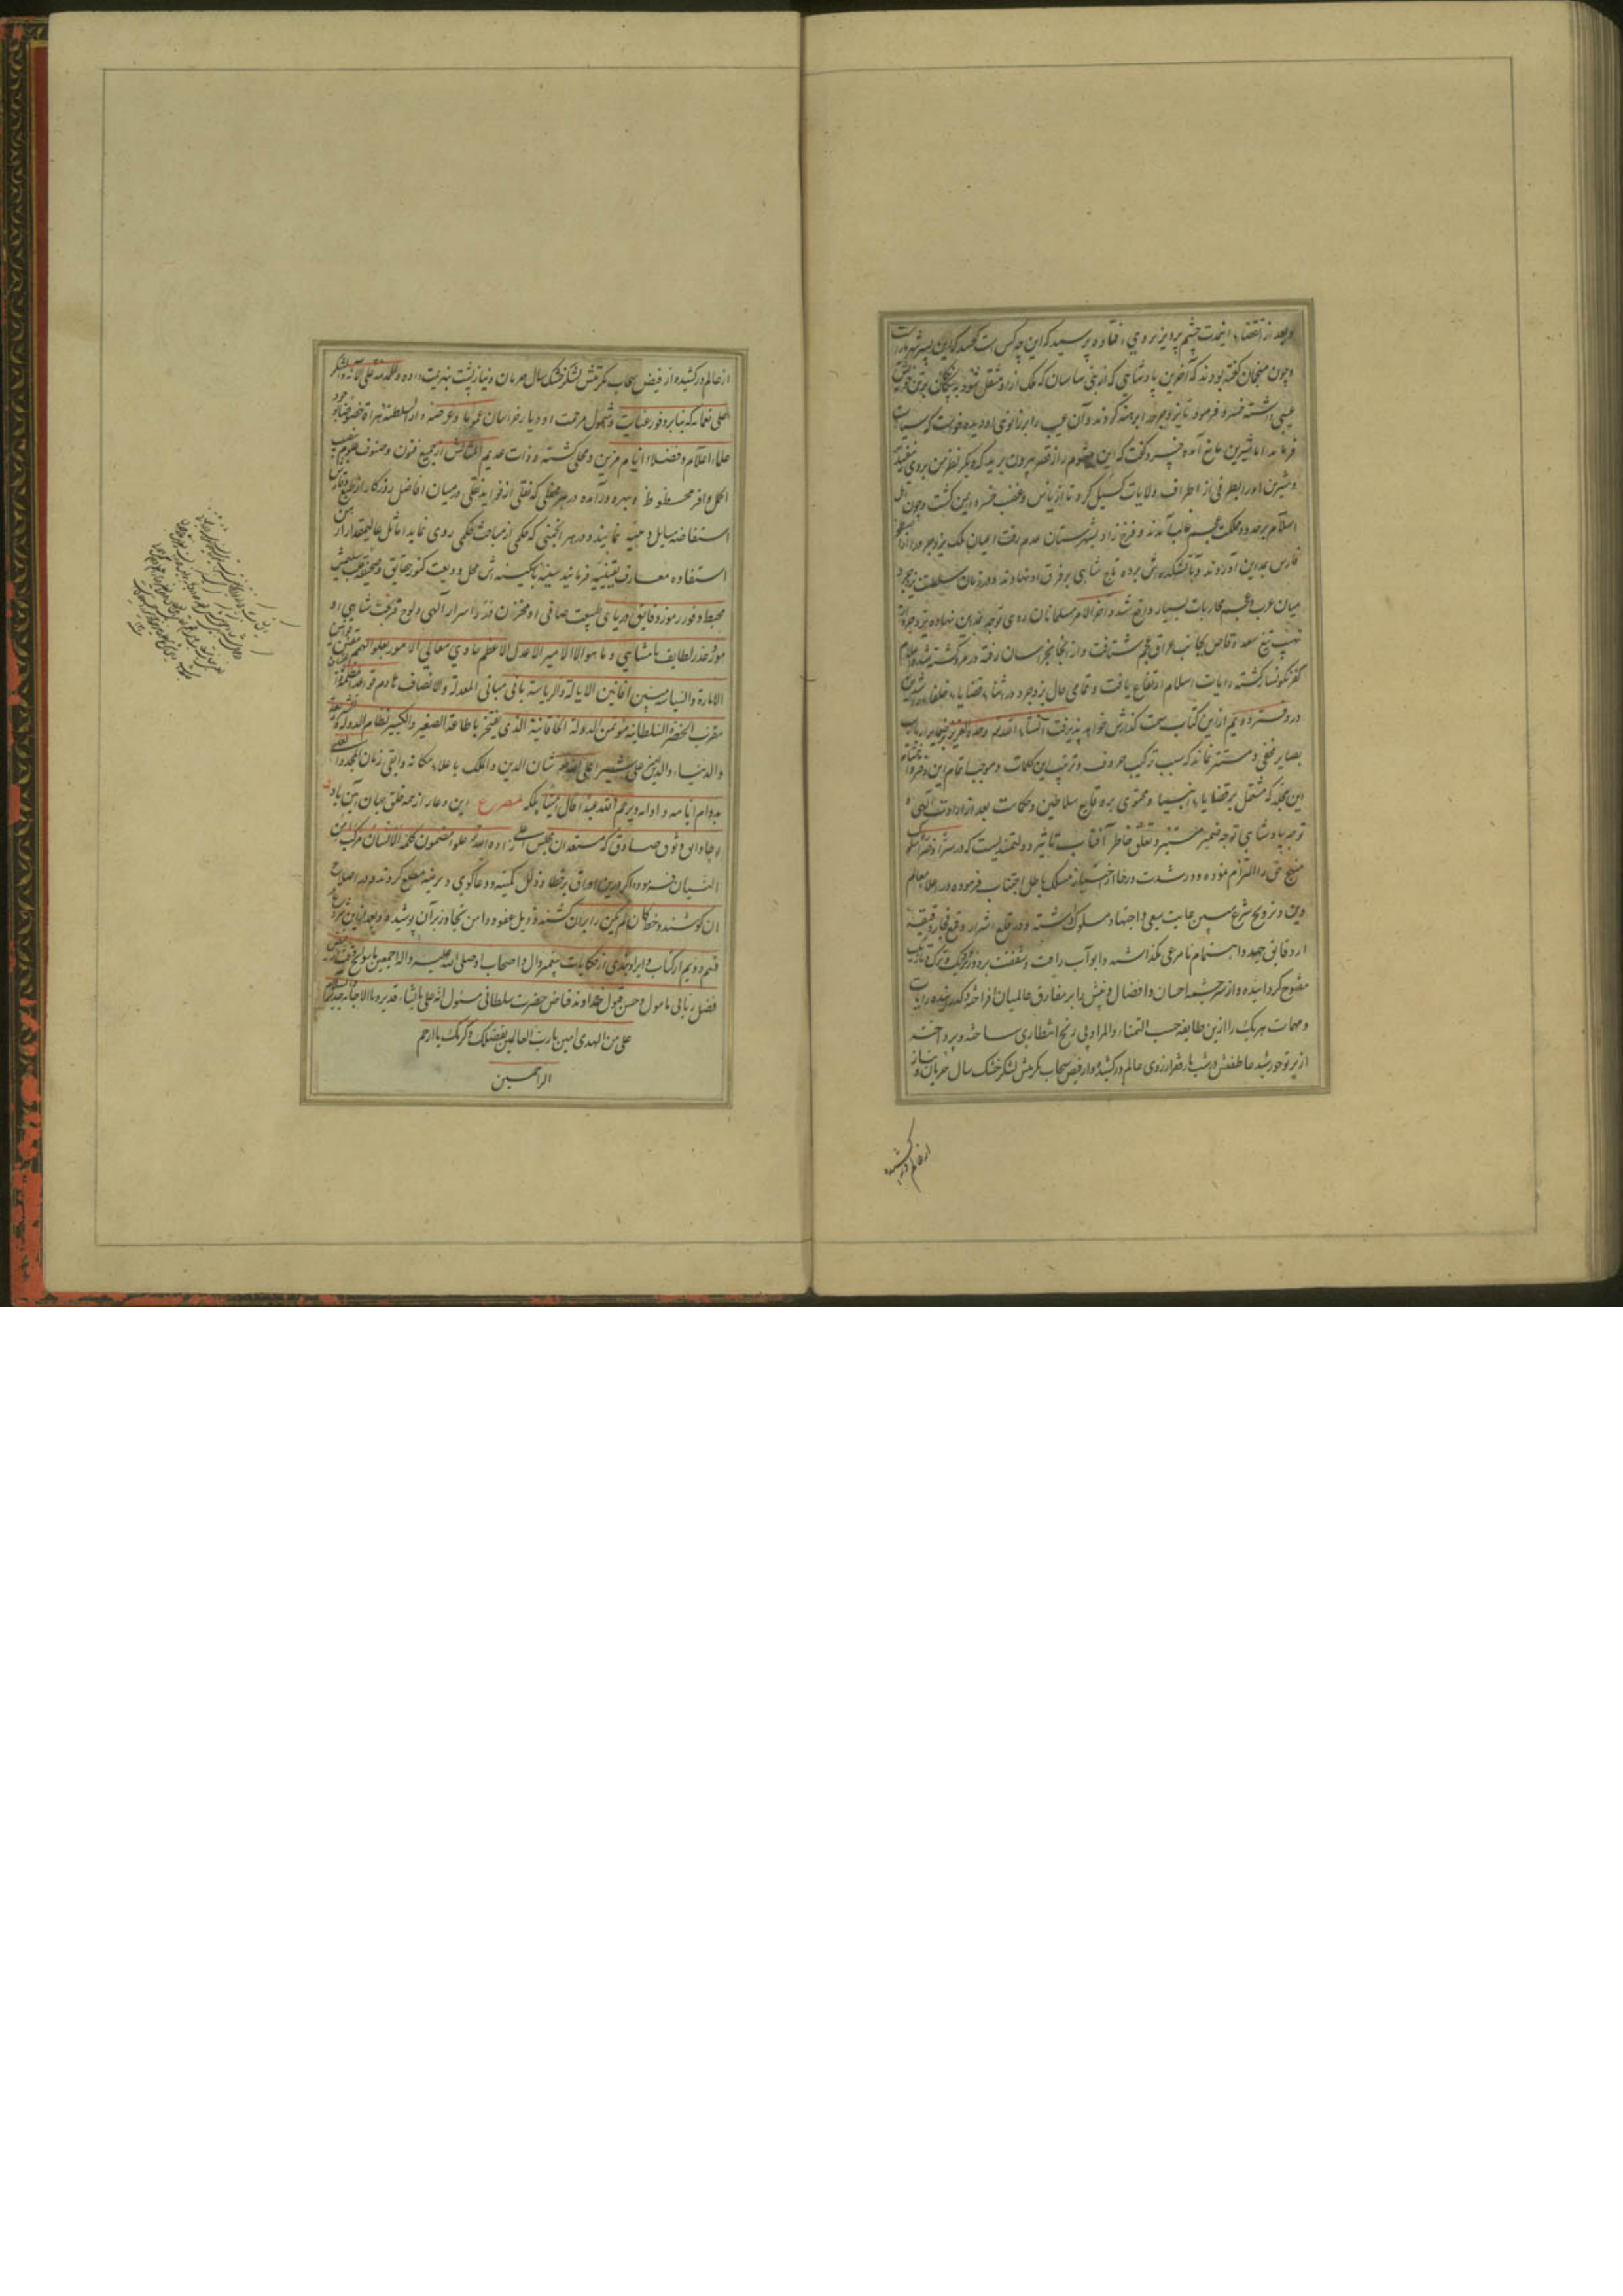 و بعد از انقضاء اینمدت چشم پرویز بر وی افتاده پرسید که این چه کس است گفتند که این پسر شهریار است
و چون منجمان گفته بودند که آخرین پادشاهی که از بنی ساسان که ملک ازو منتقل شود به بیگانگان بر تن
عیبی داشته خسرو فرمود تا یزدجرد را برهنه کردند و آن عیب را بر زانوی او دیده خواست که سیاست
فرماید اما شیرین مانع آمده خسرو گفت که این میشوم را از قصر بیرون برید که دیگر نظر من بر وی نیفتد
و شیرین او را بطرفی از اطراف ولایات گسیل کرد تا از بأس و غضب خسرو ایمن گشت و چون اهل
اسلام بر حدود مملکت عجم غالب آمدند و فرخ زاد بشهرستان عدم رفت اعیان ملک یزدجرد را از اصطخر
فارس بمداین آوردند و بآتشکده‌اش برده تاج شاهی بر فرق او نهادند و در زمان سلطنت یزدجرد
میان عرب و عجم محاربات بسیار واقع شد و آخر الامر مسلمانان روی توجه بمداین نهاده یزدجرد از
نهیب تیغ سعد وقاص بجانب عراق عجم شتافت و از آنجا بخراسان رفته در مرو کشته شد و اعلام
کفر نگونسار گشته رایات اسلام ارتفاع یافت و تمامی حال یزدجرد در اثناء قضایاء خلفاء راشدین
در دفتر دویم ازین کتاب سمت گذارش خواهد پذیرفت انشاء الله تعالی وحده العزیز بر ضمایر ارباب
بصایر مخفی و مستتر نماند که سبب ترکیب حروف و ترتیب این کلمات و موجب اتمام این دفتر و اختتام
این مجلد که مشتمل بر قضایاء انبیا و محتوی بر وقایع سلاطین و حکامست بعد از ارادت الهی و
توجه پادشاهی توجه ضمیر مستنیر و تعلق خاطر آفتاب تاثیر دولتمندیست که در سرا و ضرا سلوک
منهج حق را التزام نموده و در شدت و رخا از اختیار مسلک باطل اجتناب فرموده در اعلاء معالم
دین و ترویج شرع مبین غایت سعی و اجتهاد مسلوک داشته و در قلع اشرار و قمع فجار دقیقه
از دقایق جهد و اهتمام نامرعی نگذاشته و ابواب رأفت و شفقت بر دور و نزدیک و ترک و تازیک
مفتوح گردانیده و از سرچشمه احسان و افضال و بخش را بر مفارق عالمیان افراخته
و مهمات هر یک را ازین طایفه حسب التمناء و المراد بی رنج انتظاری ساخته و پرداخته
از پرتو خورشید عاطفتش شب تار فقرا از روی عالم در کشیده و از فیض سحاب مکرمتش لشکر خشک سال حرمان و نیاز
از عالم در کشیده
از عالم در کشیده از فیض سحاب مکرمتش لشکر خشک سال حرمان و نیاز پشت بهزیمت داده و الحمد لله علی آلائه و الشکر
علی نعمائه که بنا بر وفور عنایت و شمول مرحمت او دیار خراسان عموما و عرصه دار السلطنه هراة خصوصا بوجود
علماء اعلام و فضلاء انام مزین و محلی گشته و ذات عدیم المثالش از جمیع فنون و صنوف علوم بنصیب
اکمل و افر محظوظ و بهره‌ور آمده در هر محفلی که نقلی از فواید نقلی در میان افاضل روزگار از طبع وقادش
استفاضه مسایل دینیه نمایند و در هر انجمنی که حکمی از مباحث حکمی روی نماید اماثل عالیمقدار از ذهن
استفاده معارف یقینیه فرمایند سینه بی‌کینه‌اش محل ودیعت کنوز حقایق و صحیفه قلب سلیمش
محیط وفور رموز دقایق دریای طبیعت صافی او مخزن درر اسرار الهی و لوح قریحت شاهی او
موقع غرر لطایف نامتناهی و ما هو الا الامیر الاعدل الاعظم حاوی معالی الامور بعلو الهمم مقنن قوانین
الامارة و السیاسة مبین افانین الایالة و الریاسة بانی مبانی المعدلة و الانصاف هادم قواعد الظلم و الاعتساف
مقرب الحضرة السلطانیه مؤتمن الدولة الخاقانیة الذی یفتخر باطاعته الصغیر و الکبیر نظام الدولة و السلطنة
و الدنیا و الدین علی شیر اعلی الله تعالی شان الدین و الملک باعلاء مکانه و ابقی زمان المجد و العلی
بدوام ایامه و اوانه و یرحم الله عبدا قال آمینا بلکه مصرع این دعا از همه خلق جهان آمین باد
رجا واثق و وثوق صادق که مستعدان مجلس عالی زاده الله تعالی علوا مضمون کلمه الانسان مرکب من
النسیان فرموده اگر درین اوراق بر خطا و ذلل کمینه دعاگوی دیرینه مطلع گردند در اصلاح
آن کوشند و خط کان لم یکن را بران کشند و ذیل عفو و دامن تجاوز بر آن پوشیده و بعد ازین شروع در
قسم دویم از کتاب و ایراد بعدی از حکایات پیغمبر و آل و اصحاب او صلی الله علیه و آله اجمعین
فضل ربانی مامول و حسن قبول خداوند فیاض حضرت سلطانی مسئول انه علی ما یشاء قدیر و بالاجابة جدیر
علی من الهدی امین یا رب العالمین بفضلک و کرمک یا ارحم
الراحمین